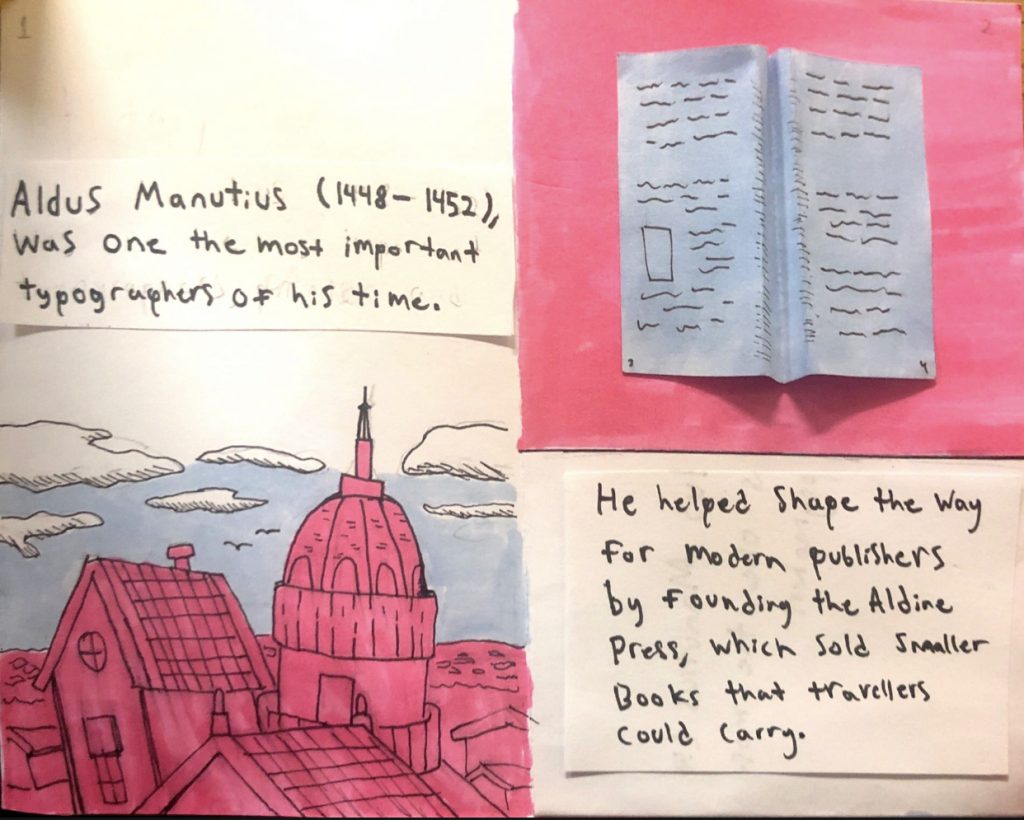 1
Aldus Manutius (1448-1452),
Was one the most important
typographers of his time.
2
3
4
He helped Shape the Way
For modern publishers
by Founding the Aldine
Press, which Sold Smaller
Books that travellers
could Carry.